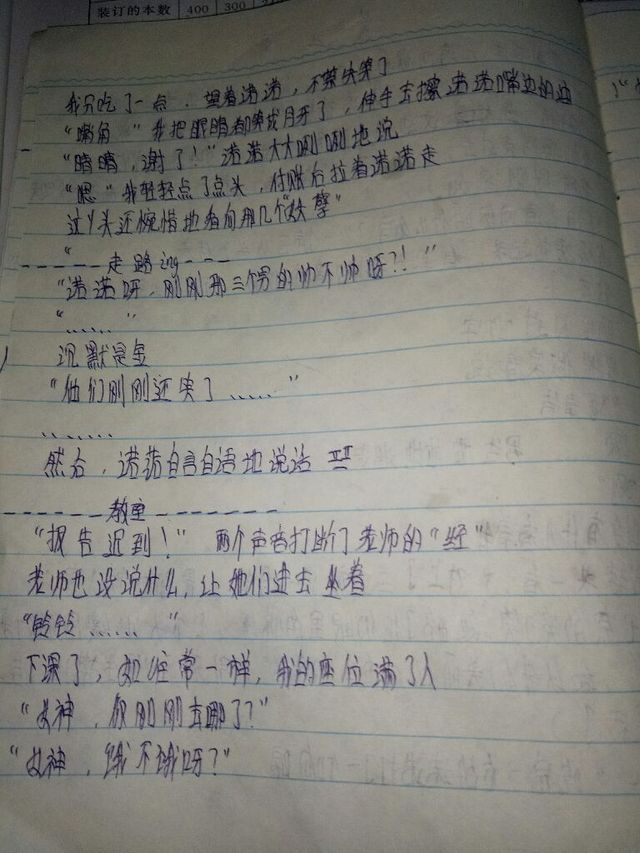 装订的本数 400 300 2
我只吃了一点，望着诺诺，不禁失笑了
"嘴角"我把眼睛都笑成月牙了，伸手去擦诺诺嘴边的边
"晴晴，谢了！"诺诺大大咧咧地说
"嗯"我轻轻点了点头，付账后拉着诺诺走
这丫头还惋惜地看向那几个"妖孽"
"
-----走路ing---
"诺诺呀，刚刚那三个男的帅不帅呀？！"
"……"
沉默是金
"他们刚刚还笑了……"
…….
然后，诺诺自言自语地说话
-----教室-------
"报告迟到！" 两个声音打断了老师的"经"
老师也没说什么，让她们进去坐着
"铃铃……"
下课了，如往常一样，我的座位满了人
"女神，你刚刚去哪了？"
"女神，饿不饿呀？"